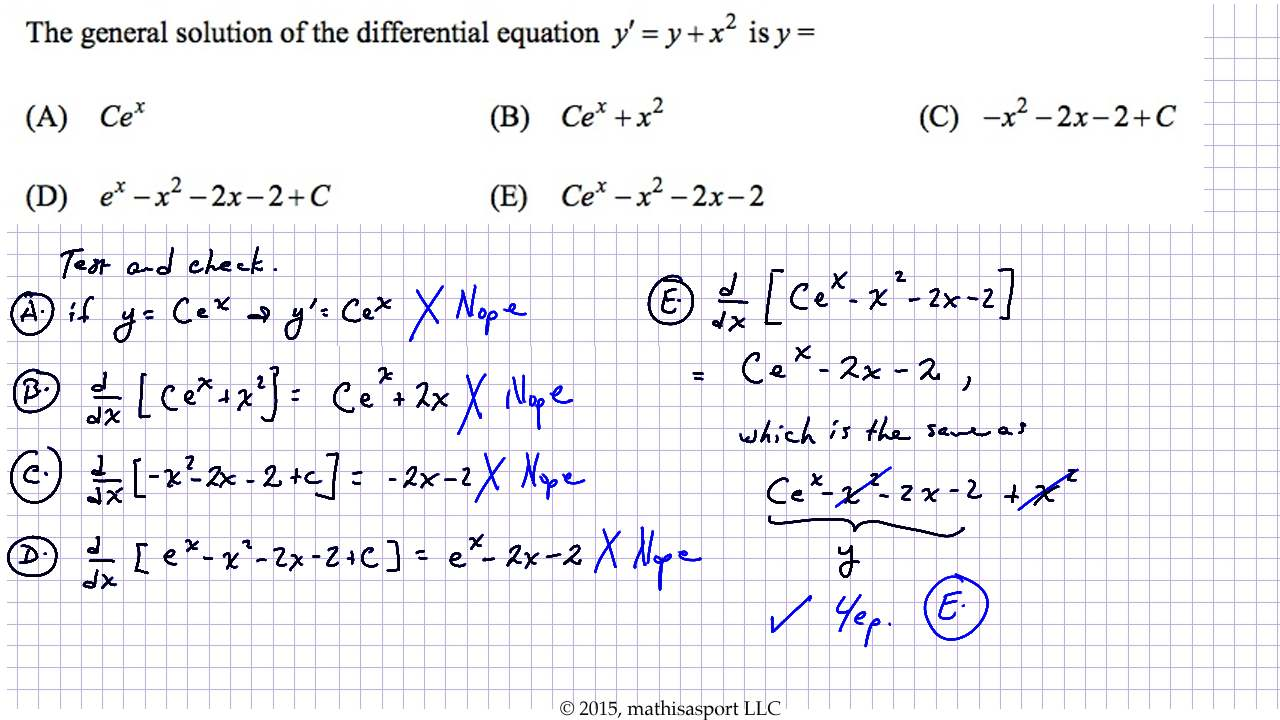 The general solution of the differential equation y′ = y + x² is y =
(A) Ceˣ (B) Ceˣ + x² (C) −x² − 2x − 2 + C
(D) eˣ − x² − 2x − 2 + C (E) Ceˣ − x² − 2x − 2
Test and check.
A. if y = Ceˣ ⇒ y' = Ceˣ X Nope
B. d/dx [Ceˣ + x²] = Ceˣ + 2x X Nope
C. d/dx [-x² - 2x - 2 + C] = -2x - 2 X Nope
D. d/dx [eˣ - x² - 2x - 2 + C] = eˣ - 2x - 2 X Nope
E. d/dx [Ceˣ - x² - 2x - 2]
= Ceˣ - 2x - 2,
which is the same as
Ceˣ - x² - 2x - 2 + x²
y
✓ Yep. E.
© 2015, mathisasport LLC